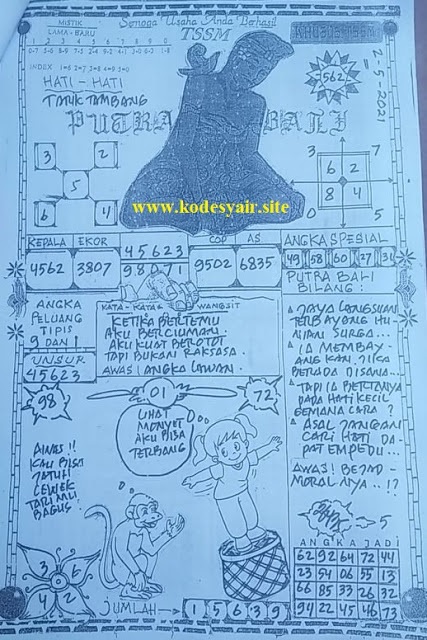 Semoga Usaha Anda Berhasil
MISTIK
LAMA - BARU
TSSM
KHUSUS TSSM
1 2 3 4 5 6 7 8 9 0
0-7 5-8 8-9
2-5-2021
562
INDEX
HATI - HATI
TARIK TAMBANG
PUTRA BALI
3 2
5
6 4
3 7
6 2
8 4
0 5
www.kodesyair.site
KEPALA EKOR
4562 3807
45623
98071
COP AS
9502 6835
ANGKA SPESIAL
49 58 60 27 31
PUTRA BALI
BILANG :
ANGKA
PELUANG
TIPIS
9 DAN 1
UNSUR
45623
KATA - KATA WANGSIT
KETIKA BERTEMU
AKU BERCIUMAN.
AKU KUAT BEROTOT
TAPI BUKAN RAKSASA.
AWAS! ANGKA LAWAN.
JAYA LANGSUNG
TERBAYANG HU-
NIAN SURGA...
IA MEMBAY-
ANGKAN JIKA
BERADA DISANA...
TAPI IA BERTANYA
PADA HATI KECIL
GEMANA CARA ?
ASAL JANGAN
CARI HATI DA-
PAT EMPEDU...
AWAS! BEJAD-
MORALNYA ..!?
98
01
72
LIHAT
MONYET
AKU BISA
TERBANG
AWAS!!
KAU BISA
JATUH!
CEWEK
TARI MU
BAGUS
3 6
4 2
5
ANGKA JADI
62 92 64 72 44
23 54 06 55 13
66 85 33 26 32
94 22 45 46 73
JUMLAH
1 5 6 3 9